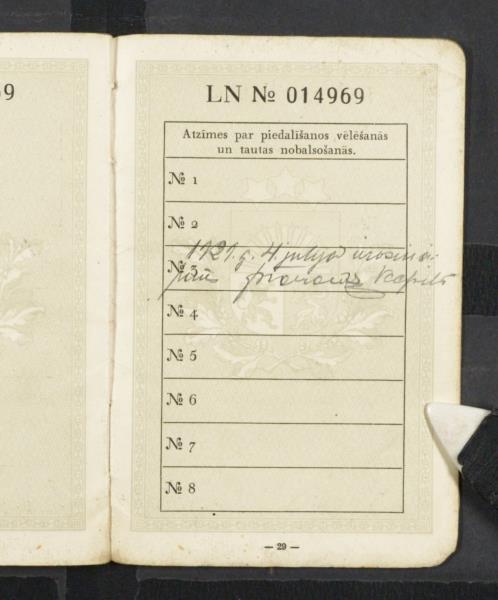 9
LN № 014969
Atzīmes par piedalīšanos vēlēšanās
un tautas nobalsošanās.
№ 1
№ 2
№ 3
№ 4
№ 5
№ 6
№ 7
№ 8
— 29 —